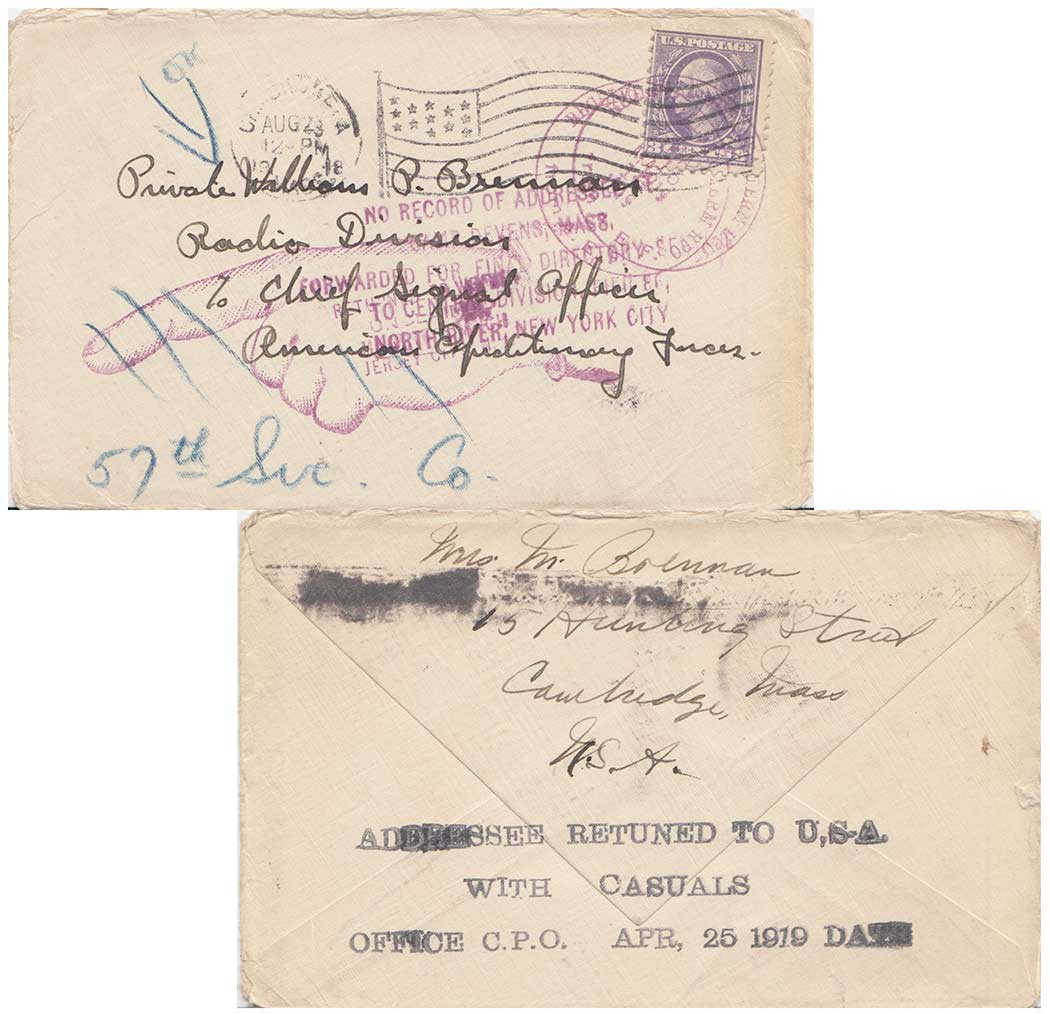 OK
U.S. POSTAGE
AUG 23
12-PM
18
Private William P. Brennan
NO RECORD OF ADDRESSEE
DEVENS, MASS.
Radio Division
FORWARDED FOR FINAL DIRECTORY
% Chief Signal Officer
TO CENTRAL DIVISION
NORTH RIVER, NEW YORK CITY
American Expeditionary Forces.
JERSEY
57th Svc. Co.
Mrs. M. Brennan
15 Hunting Street
Cambridge, Mass
U.S.A.
ADDRESSEE RETUNED TO U,S-A.
WITH CASUALS
OFFICE C.P.O. APR, 25 1919 DATE